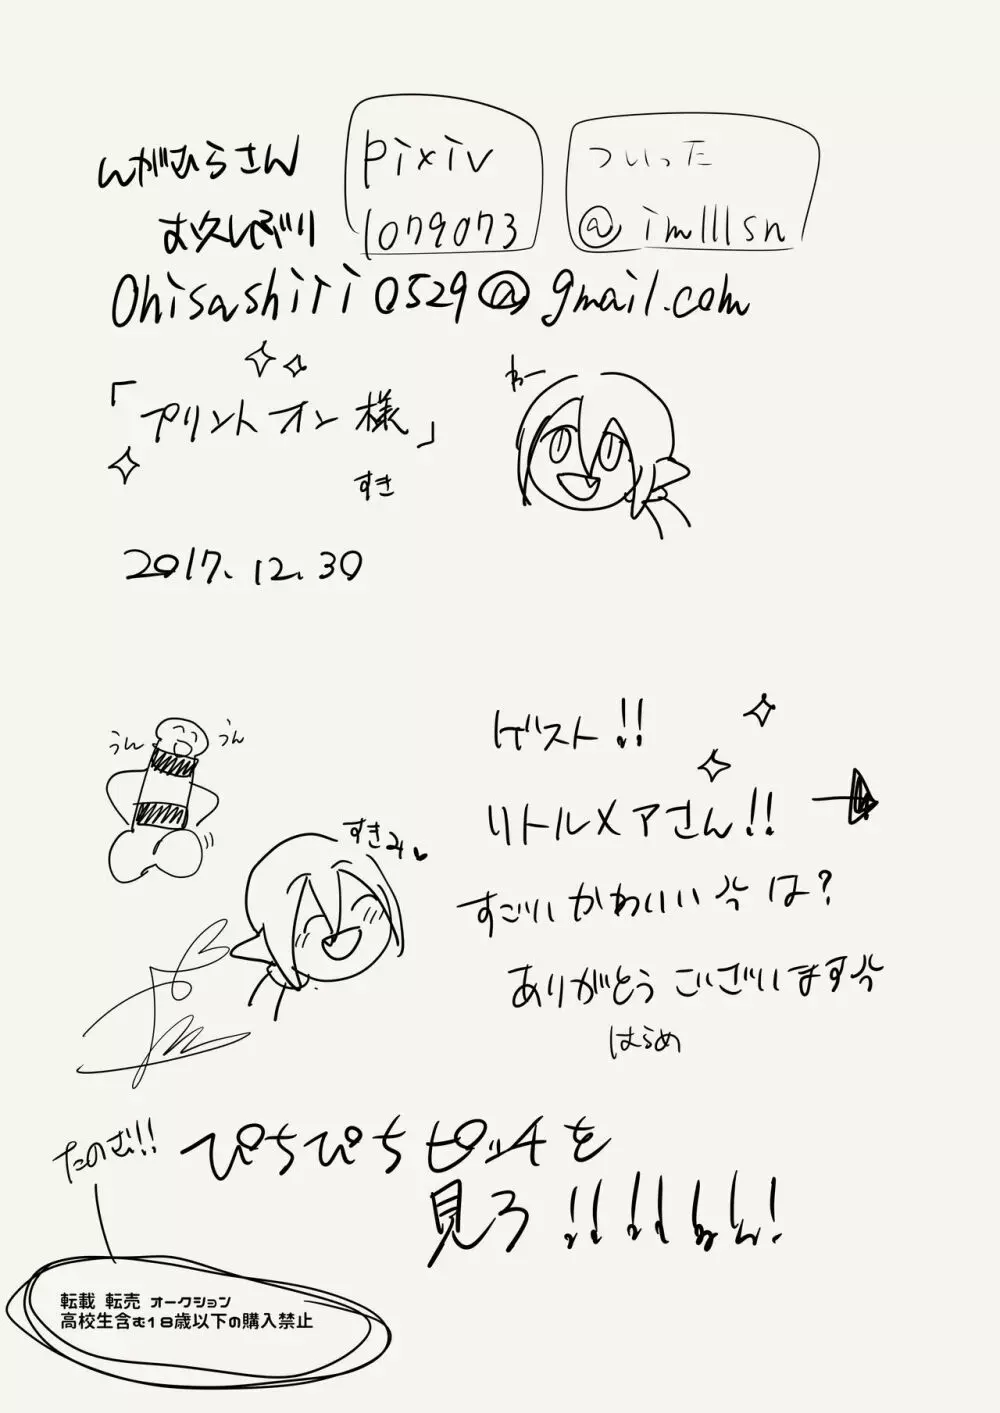 んがひらさん
お久しぶり
pixiv
1079073
ついった
@imlllsn
Ohisashiri0529@gmail.com
わー
「プリントオン様」
すき
2017.12.30
うん
うん
ゲスト!!
リトルメアさん!!
すきみ
すごいかわいい は?
ありがとうございます
はらめ
たのむ!!
ぴちぴちピッチを
見ろ!!!!!!!
転載 転売 オークション
高校生含む18歳以下の購入禁止